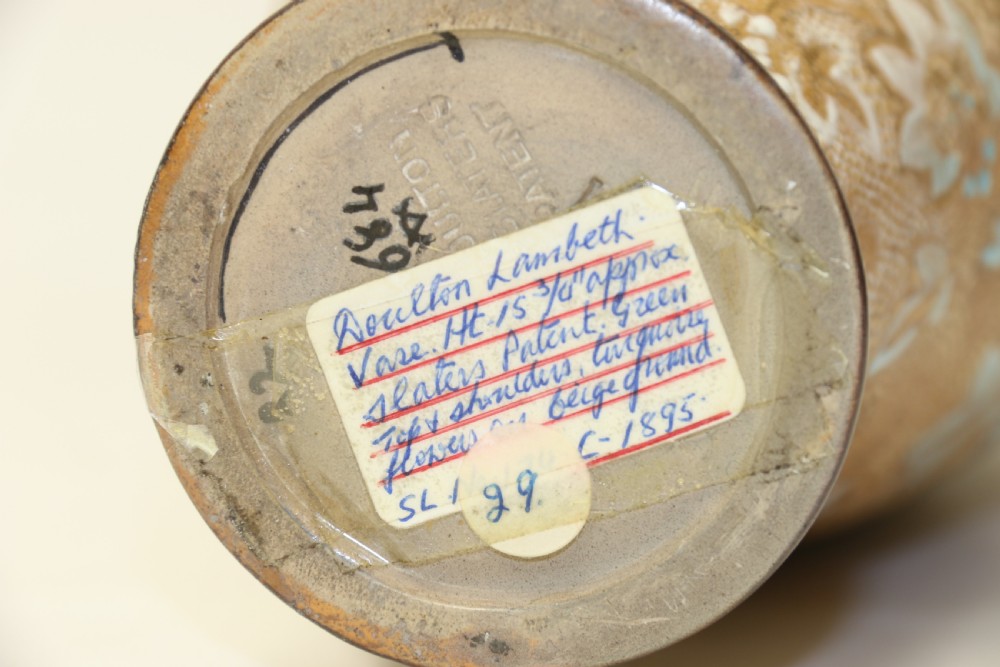 Doulton Lambeth.
Vase. Ht-15 3/4" approx.
Slaters Patent. Green
Top & shoulders, turquoise
flowers on beige ground.
SL1 C-1895.
29.
684
DOULTON
SLATERS
PATENT